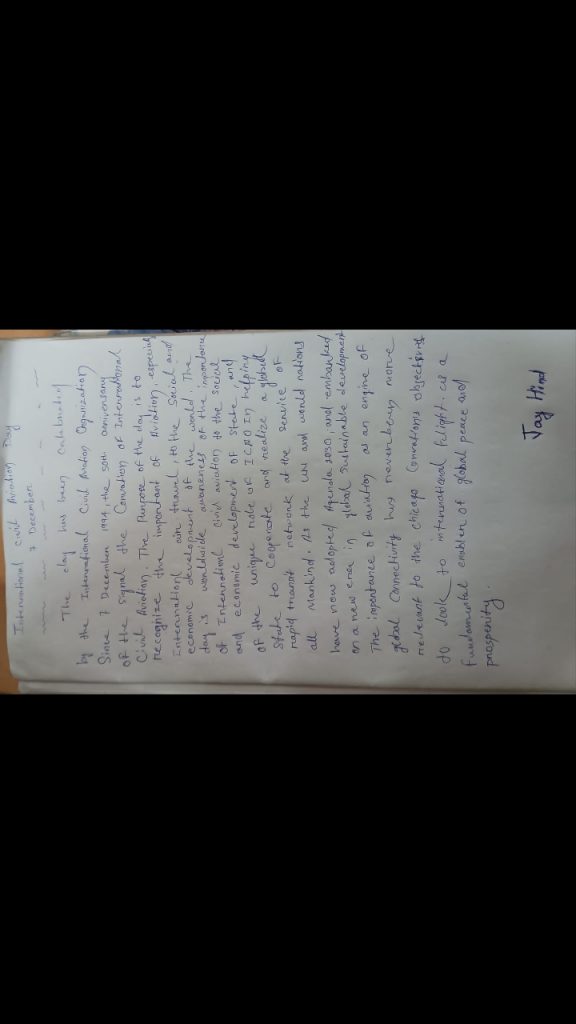 International civil Aviation Day
7 December
The day has been Celebrated
by the International Civil Aviation Organization
Since 7 December 1994, the 50th anniversary
of the signal the Convation of International
Civil Aviation. The Purpose of the day is to
recognize the important of Aviation, especial
International air travel, to the Social and
economic development of the world. The
day is worldwide awareness of the importance
of International civil aviation to the social
and economic development of state, and
of the unique role of ICAO In helping
state to Cooperate and realize a global
rapid transit network at the service of
all Mankind. As the UN and world nations
have now adopted Agenda 2030, and embarked
on a new era in global sustainable development
The importance of aviation as an engine of
global Connectivity has never been more
relevant to the chicago Convation's objectives
to look to international flight as a
fundamental enabler of global peace and
prosperity.
Jay Hind